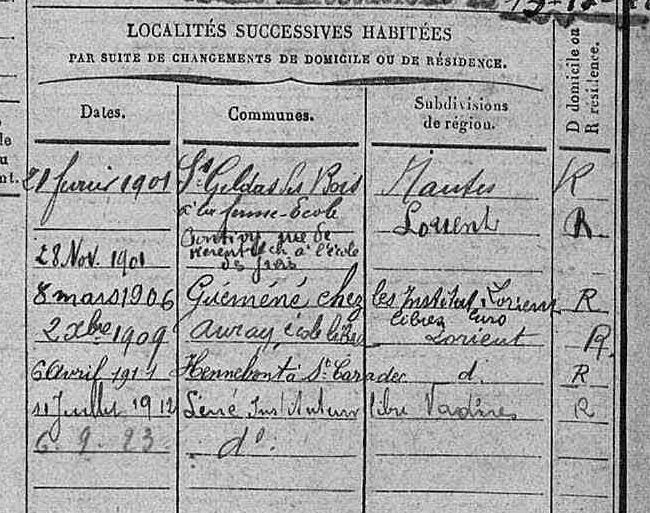 LOCALITÉS SUCCESSIVES HABITÉES
PAR SUITE DE CHANGEMENTS DE DOMICILE OU DE RÉSIDENCE.
Dates. Communes. Subdivisions de région. D domicile ou R résidence.
21 février 1901 St Gildas des Bois Nantes R
à la ferme-Ecole Lorient R
28 Nov. 1901 Pontivy rue de
à l'école
8 mars 1906 Guéméné chez les Instituteurs Lorient R
libres
2 Xbre 1909 Auray, école libre Lorient R
6 Avril 1911 Hennebont à St Caradec d. R
11 Juillet 1912 Instituteur libre R
6. 9. 23 d°.